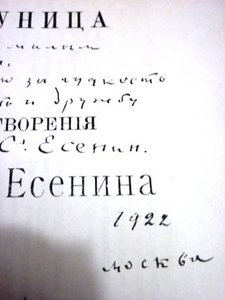 УНИЦА
милым
ю за чуткость
й и дружбу
ТВОРЕНІЯ
С. Есенин.
Есенина
1922
москва